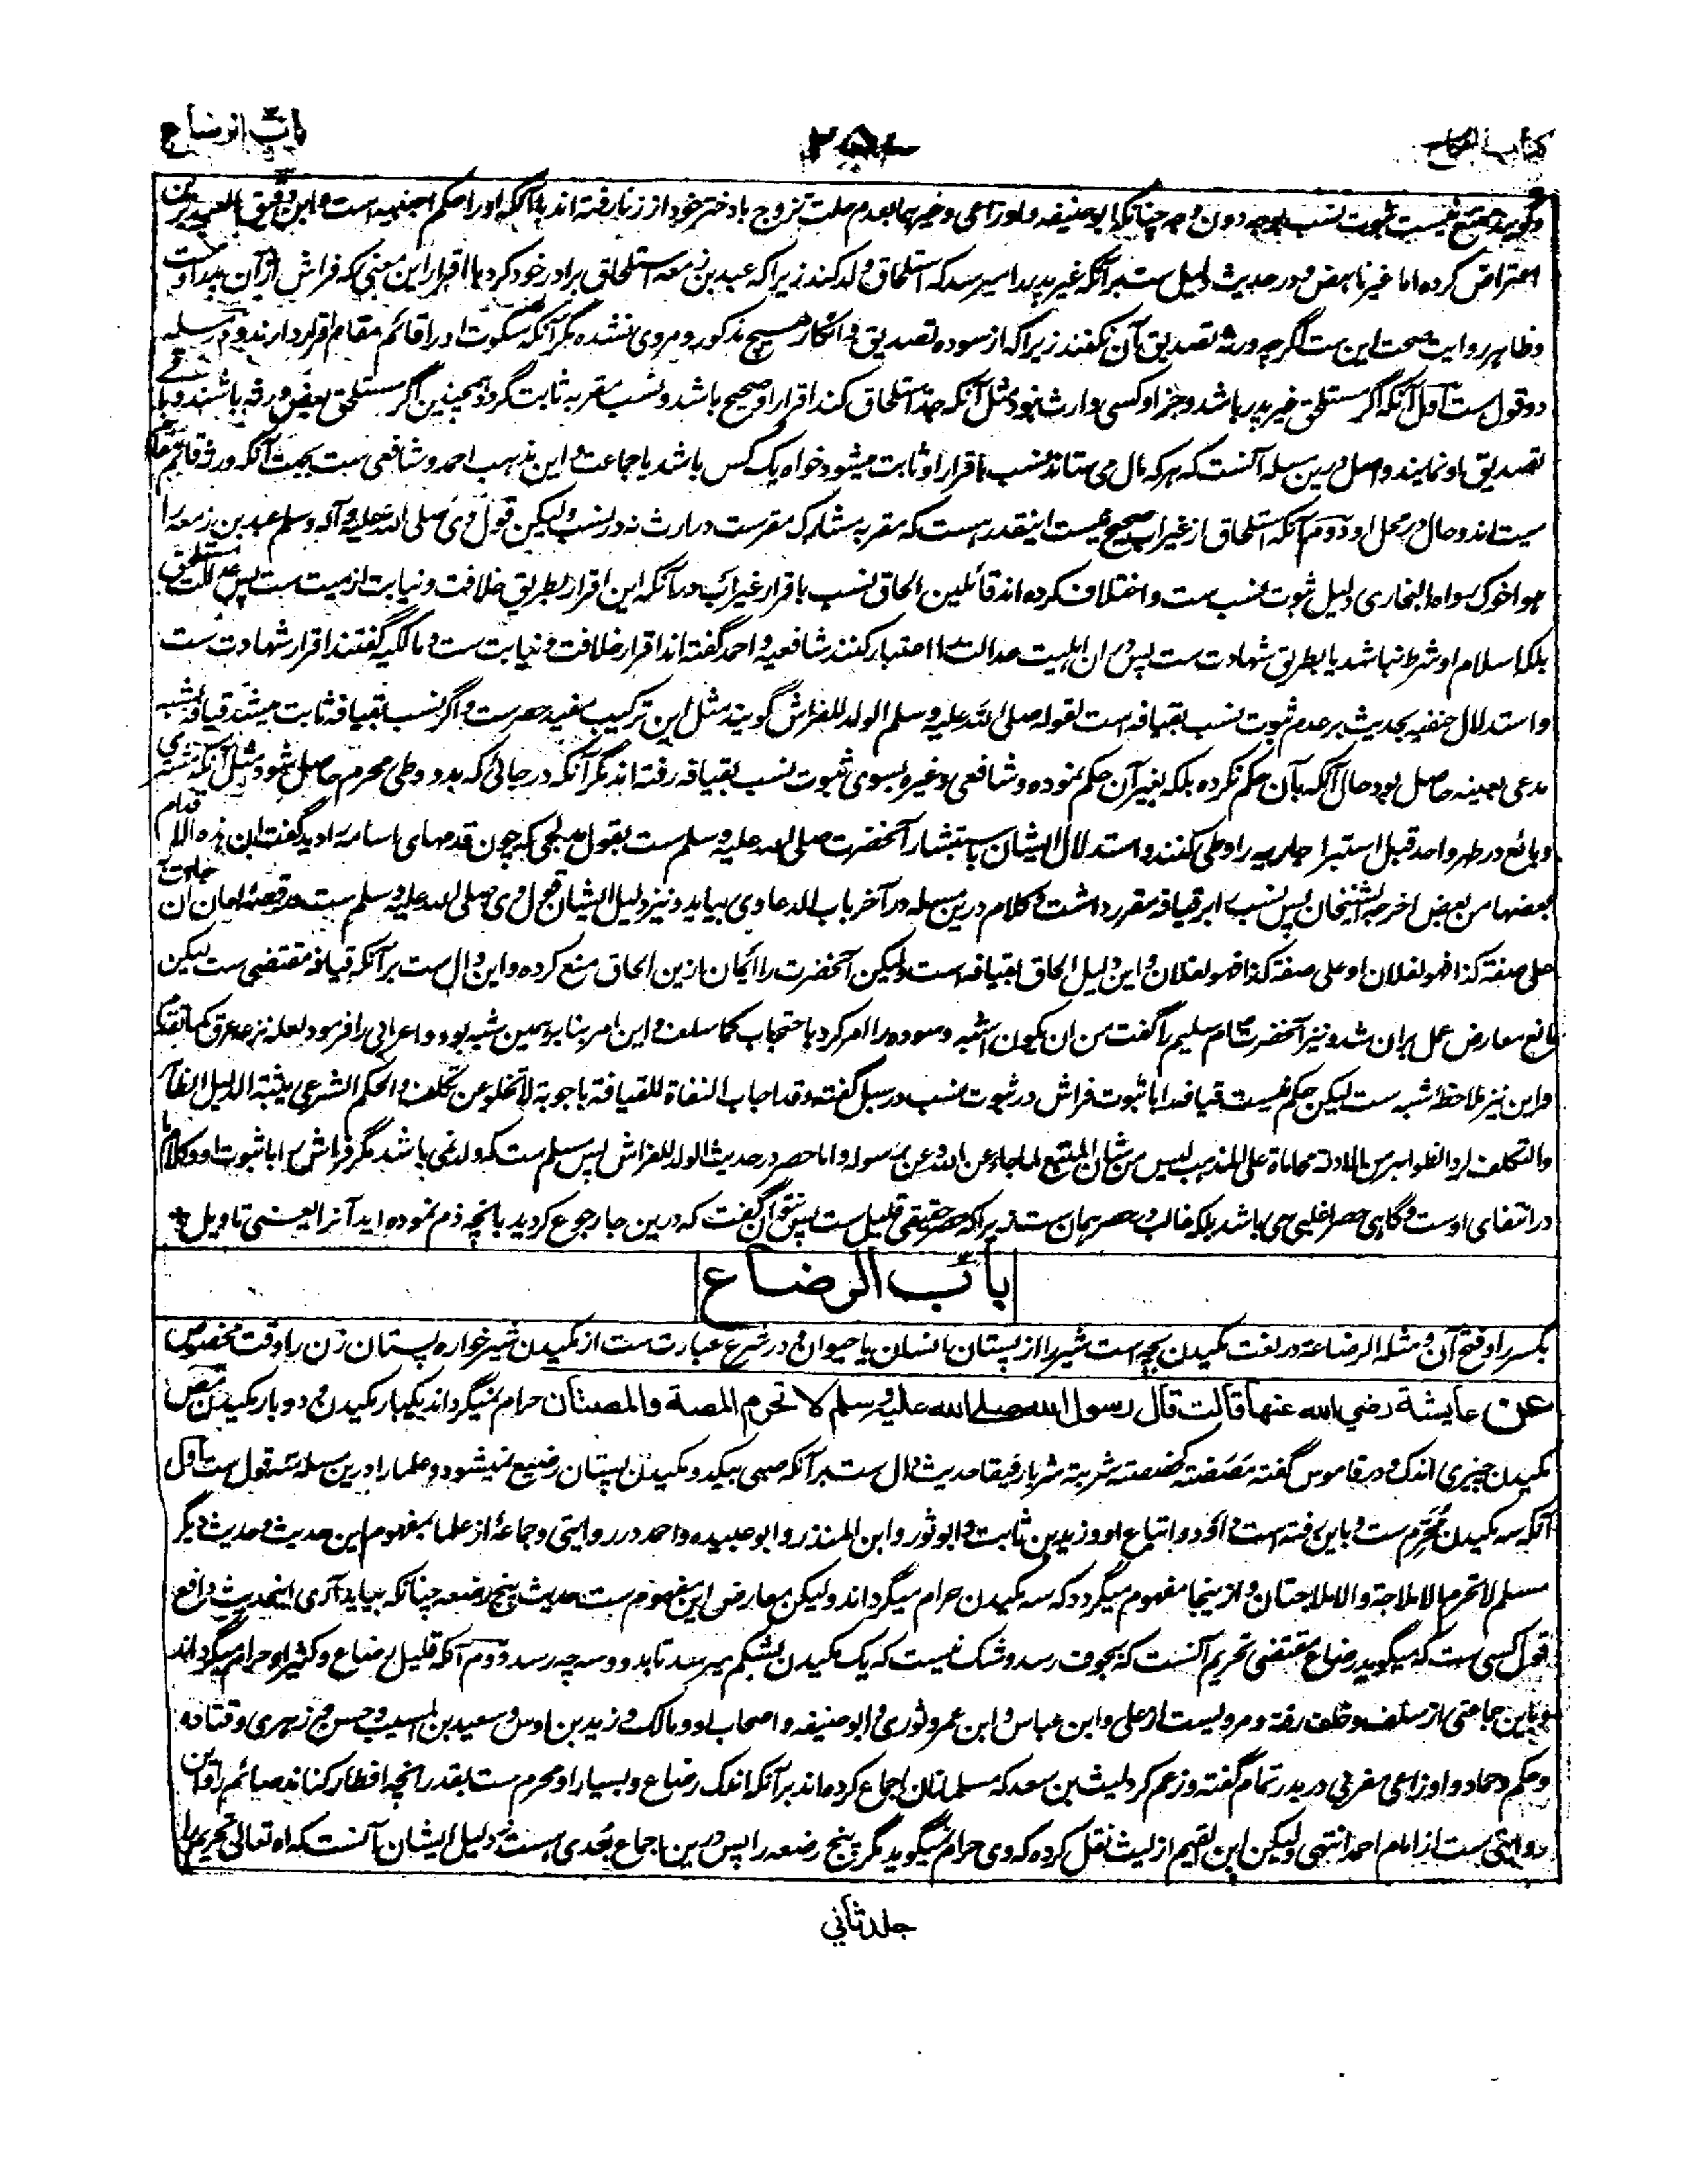 کتاب النکاح
باب الرضاع
و گویند ممتنع نیست ثبوت نسب بوجه دون وجه چنانکه ابو حنیفه و اوزاعی و غیرهما بعدم حلت تزوج با دختر خود از زنا رفته اند با آنکه او را حکم اجنبیه است و ابن دقیق العید برین
اعتراض کرده اما غیر ناهض و در حدیث دلیل ست بر آنکه غیر پدر را میرسد که استلحاق ولد کند زیرا که عبد بن زمعه استلحاق برادر خود کرد با اقرار این معنی که فراش از آن پدر اوست
و ظاهر روایت صحت این ست اگر چه ورثه تصدیق آن نکنند زیرا که از سوده تصدیق و انکار هیچ مذکور و مروی نشده مگر آنکه سکوت او را قائم مقام اقرار دارند و درین مسله
دو قول ست اول آنکه اگر مستلحق غیر پدر باشد و جز او کسی وارث نبود مثل آنکه جد استلحاق کند اقرار او صحیح باشد و نسب مقر به ثابت گردد همچنین اگر مستلحق بعض ورثه باشند و باقی
تصدیق او نمایند و اصل درین مسله آنست که هر که مال می ستاند نسب باقرار او ثابت میشود خواه یک کس باشد یا جماعت و این مذهب احمد و شافعی ست بجهت آنکه ورثه قائم مقام
میت اند و حال در محل او دوم آنکه استلحاق از غیر اب صحیح نیست اینقدر هست که مقر به مشارک مقر ست در ارث نه در نسب ولیکن قول وی صلی الله علیه و آله وسلم عبد بن زمعه را
هو اخوک رواه البخاری دلیل ثبوت نسب ست و اختلاف کرده اند قائلین الحاق نسب باقرار غیر اب در آنکه این اقرار بطریق خلافت و نیابت از میت ست پس عدالت مستلحق
بلکه اسلام او شرط نباشد یا بطریق شهادت ست پس در ان اهلیت عدالت را اعتبار کنند شافعیه و احمد گفته اند اقرار خلافت و نیابت ست و مالکیه گفتند اقرار شهادت ست
و استدلال حنفیه بحدیث بر عدم ثبوت نسب بقیافه است لقوله صلی الله علیه وسلم الولد للفراش گویند مثل این ترکیب مفید حصر ست و اگر نسب بقیافه ثابت میشد قیافه شبه
مدعی بعینه حاصل بود حال آنکه بآن حکم نکرده بلکه بغیر آن حکم نموده و شافعی و غیره بسوی ثبوت نسب بقیافه رفته اند مگر آنکه در جائی که بدو وطی محرم حاصل شود مثل آنکه مشتری
و بائع در طهر واحد قبل استبرا جاریه را وطی کنند و استدلال ایشان باستبشار آنحضرت صلی الله علیه وسلم ست بقول مدلجی که چون قدمهای اسامه را دید گفت ان هذه الاقدام
بعضها من بعض اخرجه الشیخان پس نسب را بر قیافه مقرر داشت و کلام درین مسله در آخر باب الدعاوی بیاید و نیز دلیل ایشان قول وی صلی الله علیه وسلم ست در قصه لعان ان جاءت به
علی صفة کذا فهو لفلان او علی صفة کذا فهو لفلان و این دلیل الحاق بقیافه است ولیکن آنحضرت را ایمان ازین الحاق منع کرده و این دال ست بر آنکه قیافه مقتضی ست لیکن
مانع معارض عمل بران شد و نیز آنحضرت ام سلیم را گفت من این یکون الشبه و سوده را امر کرد باحتجاب کما سلف و این امر بنا بر همین شبه بود و اعرابی را فرمود لعله نزعه عرق کما تقدم
و این نیز ملاحظ شبه ست لیکن حکم نیست قیافه را با ثبوت فراش در ثبوت نسب در سبل گفته و قد اجاب النفاة للقیافة باجوبة لا تخلو عن تکلف و الحکم الشرعی یثبته الدلیل الظاهر
و التکلف لرد الظواهر من الادلة محاماة علی المذهب لیس من شان المتبع لما جاء عن الله و عن رسوله و اما حصر در حدیث الولد للفراش پس مسلم ست که ولد نمی باشد مگر فراش را با ثبوت او و کلام ما
در انتفای اوست و گاهی حصر اغلبی می باشد بلکه غالب در حصر همان ست زیرا که حصر حقیقی قلیل ست پس نتوان گفت که درین جا رجوع کردید بانچه ذم نموده اید آنرا یعنی تاویل
باب الرضاع
بکسر را و فتح آن و مثله الرضاعة در لغت مکیدن بچه است شیر را از پستان انسان یا حیوان و در شرع عبارت ست از مکیدن شیرخواره پستان زن را وقت مخصوص
عن عایشة رضی الله عنها قالت قال رسول الله صلے الله علیه وسلم لا تحرم المصة والمصتان حرام نمیگرداند یکبار مکیدن و دو بار مکیدن مص
مکیدن چیزی اندک و در قاموس گفته مَصَصْته کخصصته شربته شربا رفیقا حدیث دال ست بر آنکه صبی بیک و دو مکیدن پستان رضیع نمیشود و علما را درین مسله سه قول ست اول
آنکه سه مکیدن مُحَرِّم ست و باین رفته است داؤد و اتباع او و زید بن ثابت و ابو ثور و ابن المنذر و ابو عبیده و احمد در روایتی و جماعة از علما بمفهوم این حدیث و حدیث دیگر
مسلم لا تحرم الاملاجة والاملاجتان و ازینجا مفهوم میگردد که سه مکیدن حرام میگرداند ولیکن معارض این مفهوم ست حدیث پنج رضعه چنانکه بیاید آری اینحدیث دافع
قول کسی ست که میگوید رضاع مقتضی تحریم آنست که بجوف رسد و شک نیست که یک مکیدن بشکم میرسد تا بدو و سه چه رسد دوم آنکه قلیل رضاع و کثیر او حرام میگرداند
و باین جماعتی از سلف و خلف رفته و مرویست از علی و ابن عباس و ابن عمر و ثوری و ابو حنیفه و اصحاب او و مالک و زید بن اوس و سعید بن المسیب و حسن و زهری و قتاده
و حکم و حماد و اوزاعی مغربی در بدر تمام گفته و زعم کرد لیث بن سعد که مسلمانان اجماع کرده اند بر آنکه اندک رضاع و بسیار او محرم ست بقدر انچه افطار کناند صائم را و این
روایتی ست از امام احمد انتهی ولیکن ابن القیم از لیث نقل کرده که وی حرام نمیگوید مگر پنج رضعه را پس درین اجماع بُعدی هست دلیل ایشان آنست که اه تعالی تحریم را
جلد ثانی